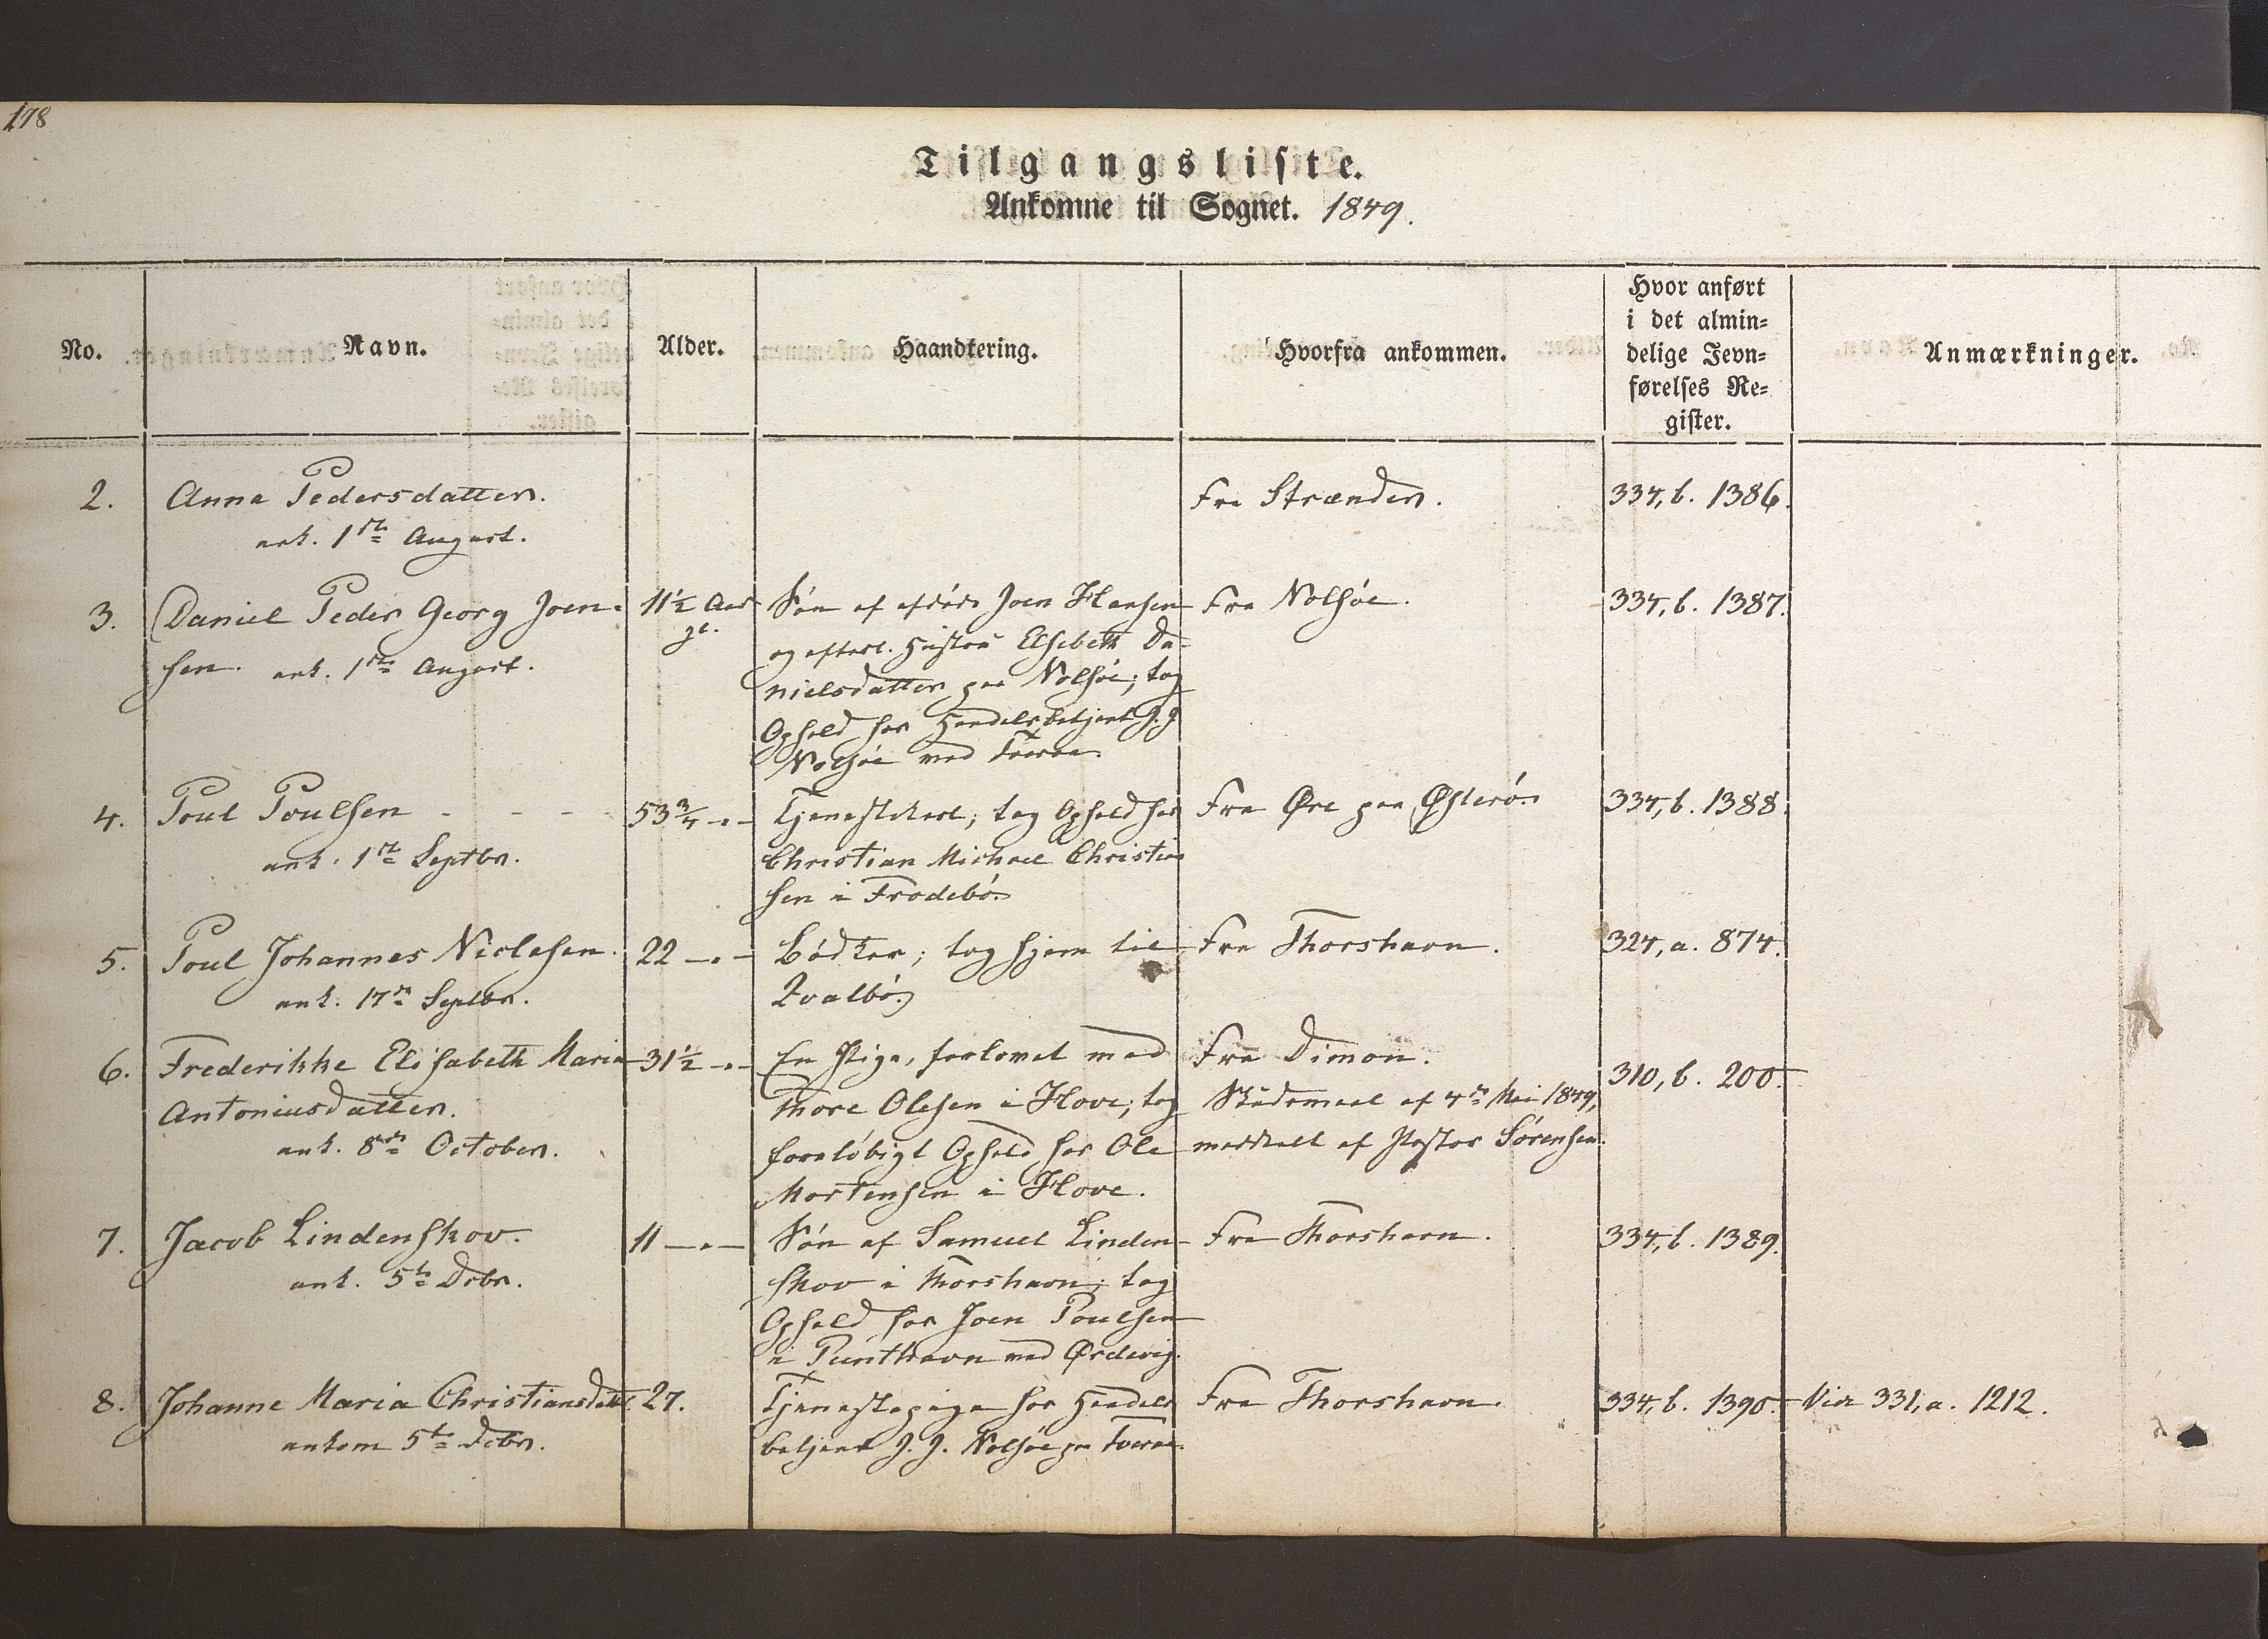 178
Tilgangsliste.
Ankomne til Sognet. 1849.
No.
Navn.
Alder.
Haandtering.
Hvorfra ankommen.
Hvor anført
i det almin=
delige Jevn=
førelses Re=
gister.
Anmærkninger.
2.
Anna Pedersdatter.
ank. 1ste August.
Fra Strænder.
334, b. 1386.
3.
Daniel Peder Georg Joen-
sen. ank. 1ste August.
11½ Aar
gl.
Søn af afdøde Joen Hansen
og efterl. Hustru Elsebeth Da-
nielsdatter paa Nolsöe; tog
Ophold hos Handelsbetjent J. J.
Nolsöe ved Tveraa.
Fra Nolsöe.
334, b. 1387.
4.
Poul Poulsen - - -
ank. 1ste Septbr.
53¾ -"-
Tjenestekarl; tog Ophold hos
Christian Michael Christian
sen i Frodebö.
Fra Øre paa Østerö.
334, b. 1388.
5.
Poul Johannes Niclasen.
ank. 17de Septbr.
22 -"-
Bödker; tog hjem til
Qvalbö.
Fra Thorshavn.
324, a. 874.
6.
Frederikke Elisabeth Maria
Antoniusdatter.
ank. 8de October.
31½ -"-
En Pige, forlovet med
Thore Olesen i Hove; tog
foreløbigt Ophold hos Ole
Mortensen i Hove.
Fra Dimon.
Skudsmaal af 4de Mai 1849,
meddelt af Pastor Sörensen.
310, b. 200.
7.
Jacob Lindenskov.
ank. 5te Dcbr.
11 -"-
Søn af Samuel Linden-
skov i Thorshavn; tog
Ophold hos Joen Poulsen
i Punthavn ved Ørdevig.
Fra Thorshavn.
334, b. 1389.
8.
Johanne Maria Christiansdatt.
ankom 5te Dcbr.
27.
Tjenestepige hos Handels
betjent J. J. Nolsöe paa Tveraa.
Fra Thorshavn.
334, b. 1390.
Vide 331, a. 1212.